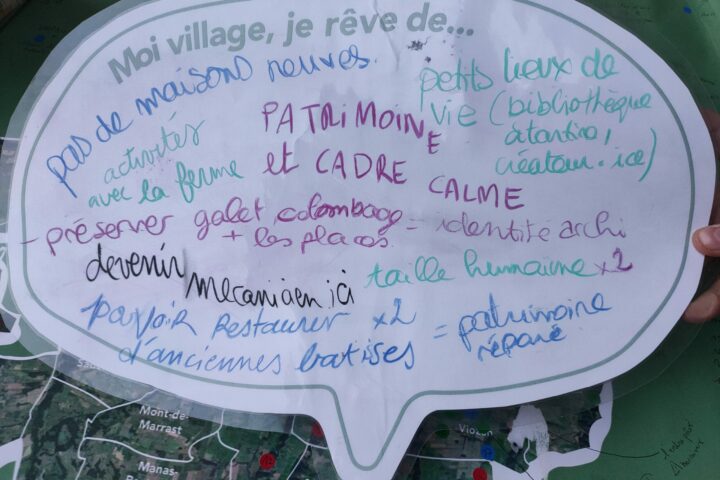 Moi village, je rêve de...
pas de maisons neuves.
petits lieux de
vie (bibliothèque
créateur.ice)
PATRIMOINE
et CADRE
CALME
activités
avec la ferme
- préserver galet, colombage = identité archi
+ les places
devenir
mecanicien ici
taille humaine x2
pouvoir restaurer x2
d'anciennes batises
= patrimoine
réparé
Mont-de-
Marrast
Manas-
Viozan